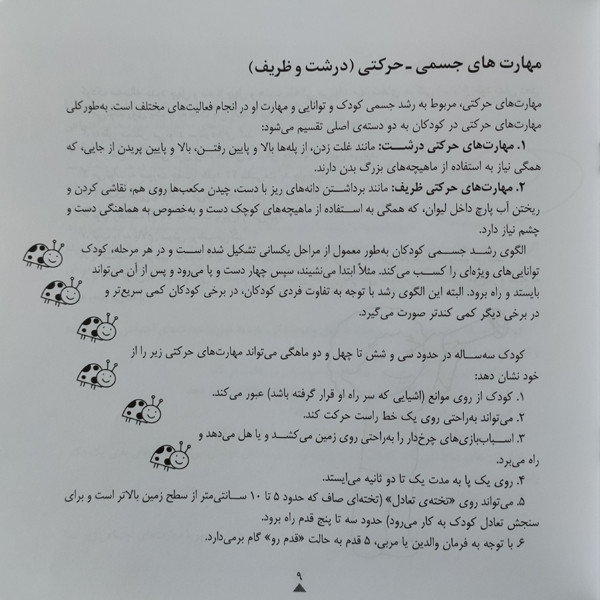 مهارت های جسمی - حرکتی (درشت و ظریف)
مهارت‌های حرکتی، مربوط به رشد جسمی کودک و توانایی و مهارت او در انجام فعالیت‌های مختلف است. به‌طورکلی
مهارت‌های حرکتی در کودکان به دو دسته‌ی اصلی تقسیم می‌شود:
۱. مهارت‌های حرکتی درشت: مانند غلت زدن، از پله‌ها بالا و پایین رفتن، بالا و پایین پریدن از جایی، که
همگی نیاز به استفاده از ماهیچه‌های بزرگ بدن دارند.
۲. مهارت‌های حرکتی ظریف: مانند برداشتن دانه‌های ریز با دست، چیدن مکعب‌ها روی هم، نقاشی کردن و
ریختن آب پارچ داخل لیوان، که همگی به استفاده از ماهیچه‌های کوچک دست و به‌خصوص به هماهنگی دست و
چشم نیاز دارد.
الگوی رشد جسمی کودکان به‌طور معمول از مراحل یکسانی تشکیل شده است و در هر مرحله، کودک
توانایی‌های ویژه‌ای را کسب می‌کند. مثلاً ابتدا می‌نشیند، سپس چهار دست و پا می‌رود و پس از آن می‌تواند
بایستد و راه برود. البته این الگوی رشد با توجه به تفاوت فردی کودکان، در برخی کودکان کمی سریع‌تر و
در برخی دیگر کمی کندتر صورت می‌گیرد.
کودک سه‌ساله در حدود سی و شش تا چهل و دو ماهگی می‌تواند مهارت‌های حرکتی زیر را از
خود نشان دهد:
۱. کودک از روی موانع (اشیایی که سر راه او قرار گرفته باشد) عبور می‌کند.
۲. می‌تواند به‌راحتی روی یک خط راست حرکت کند.
۳. اسباب‌بازی‌های چرخ‌دار را به‌راحتی روی زمین می‌کشد و یا هل می‌دهد و
راه می‌برد.
۴. روی یک پا به مدت یک تا دو ثانیه می‌ایستد.
۵. می‌تواند روی «تخته‌ی تعادل» (تخته‌ای صاف که حدود ۵ تا ۱۰ سانتی‌متر از سطح زمین بالاتر است و برای
سنجش تعادل کودک به کار می‌رود) حدود سه تا پنج قدم راه برود.
۶. با توجه به فرمان والدین یا مربی، ۵ قدم به حالت «قدم رو» گام برمی‌دارد.
۹